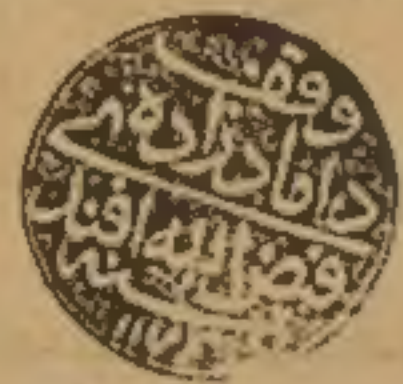 وقف
داماد زاده
فيض الله افندی
سنه